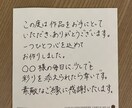 この度は作品をお手にとって
いただき、ありがとうございます。
一つひとつ心を込めて
お作りしました。
〇〇様の毎日に少しでも
彩りを添えられたら幸いです。
素敵なご縁に感謝いたします。